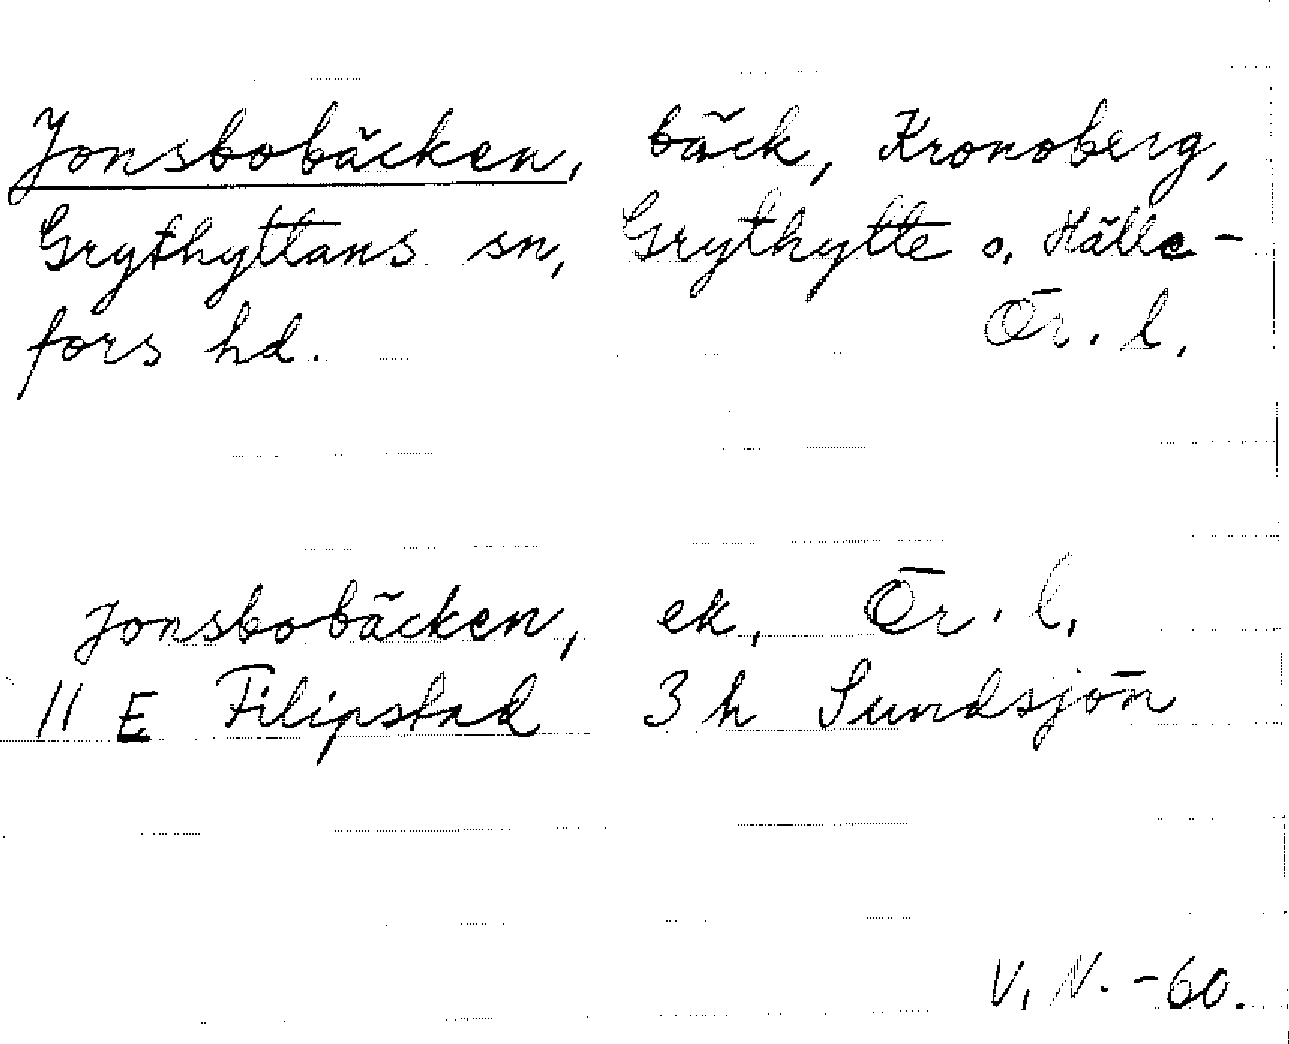 Jonsbobäcken, bäck, Kronoberg,
Grythyttans sn, Grythytte o. Hälle-
fors hd. Ör. l.
Jonsbobäcken, ek, Ör. l,
11 E Filipstad 3 h Sundsjön
V. N. -60.